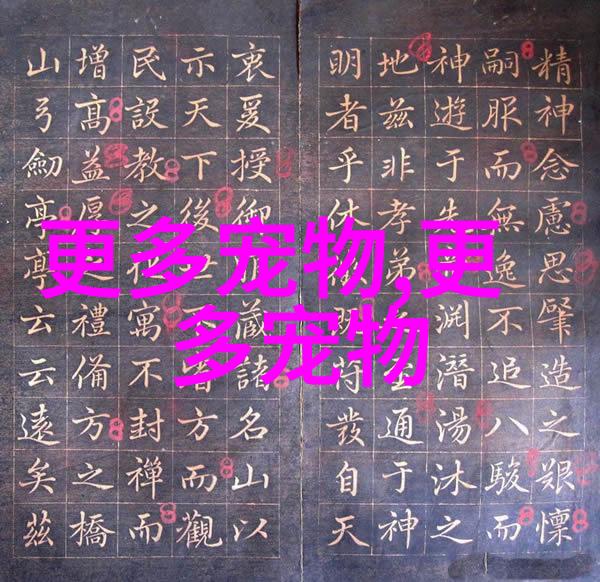 更多宠物,更
多宠物
精神念慮思肇造之艱懍
嗣服而無逸不追八駿而
神遊于渕潛湯沐之
地茲非孝弟至通于神
明者乎休既符發自天
衷爰授御藏諸名山以
示天下後不省方而觀
民設教之寓不封禪而
增高益厚禮俻方之橋
山弓劒亭亭云云遠矣茲